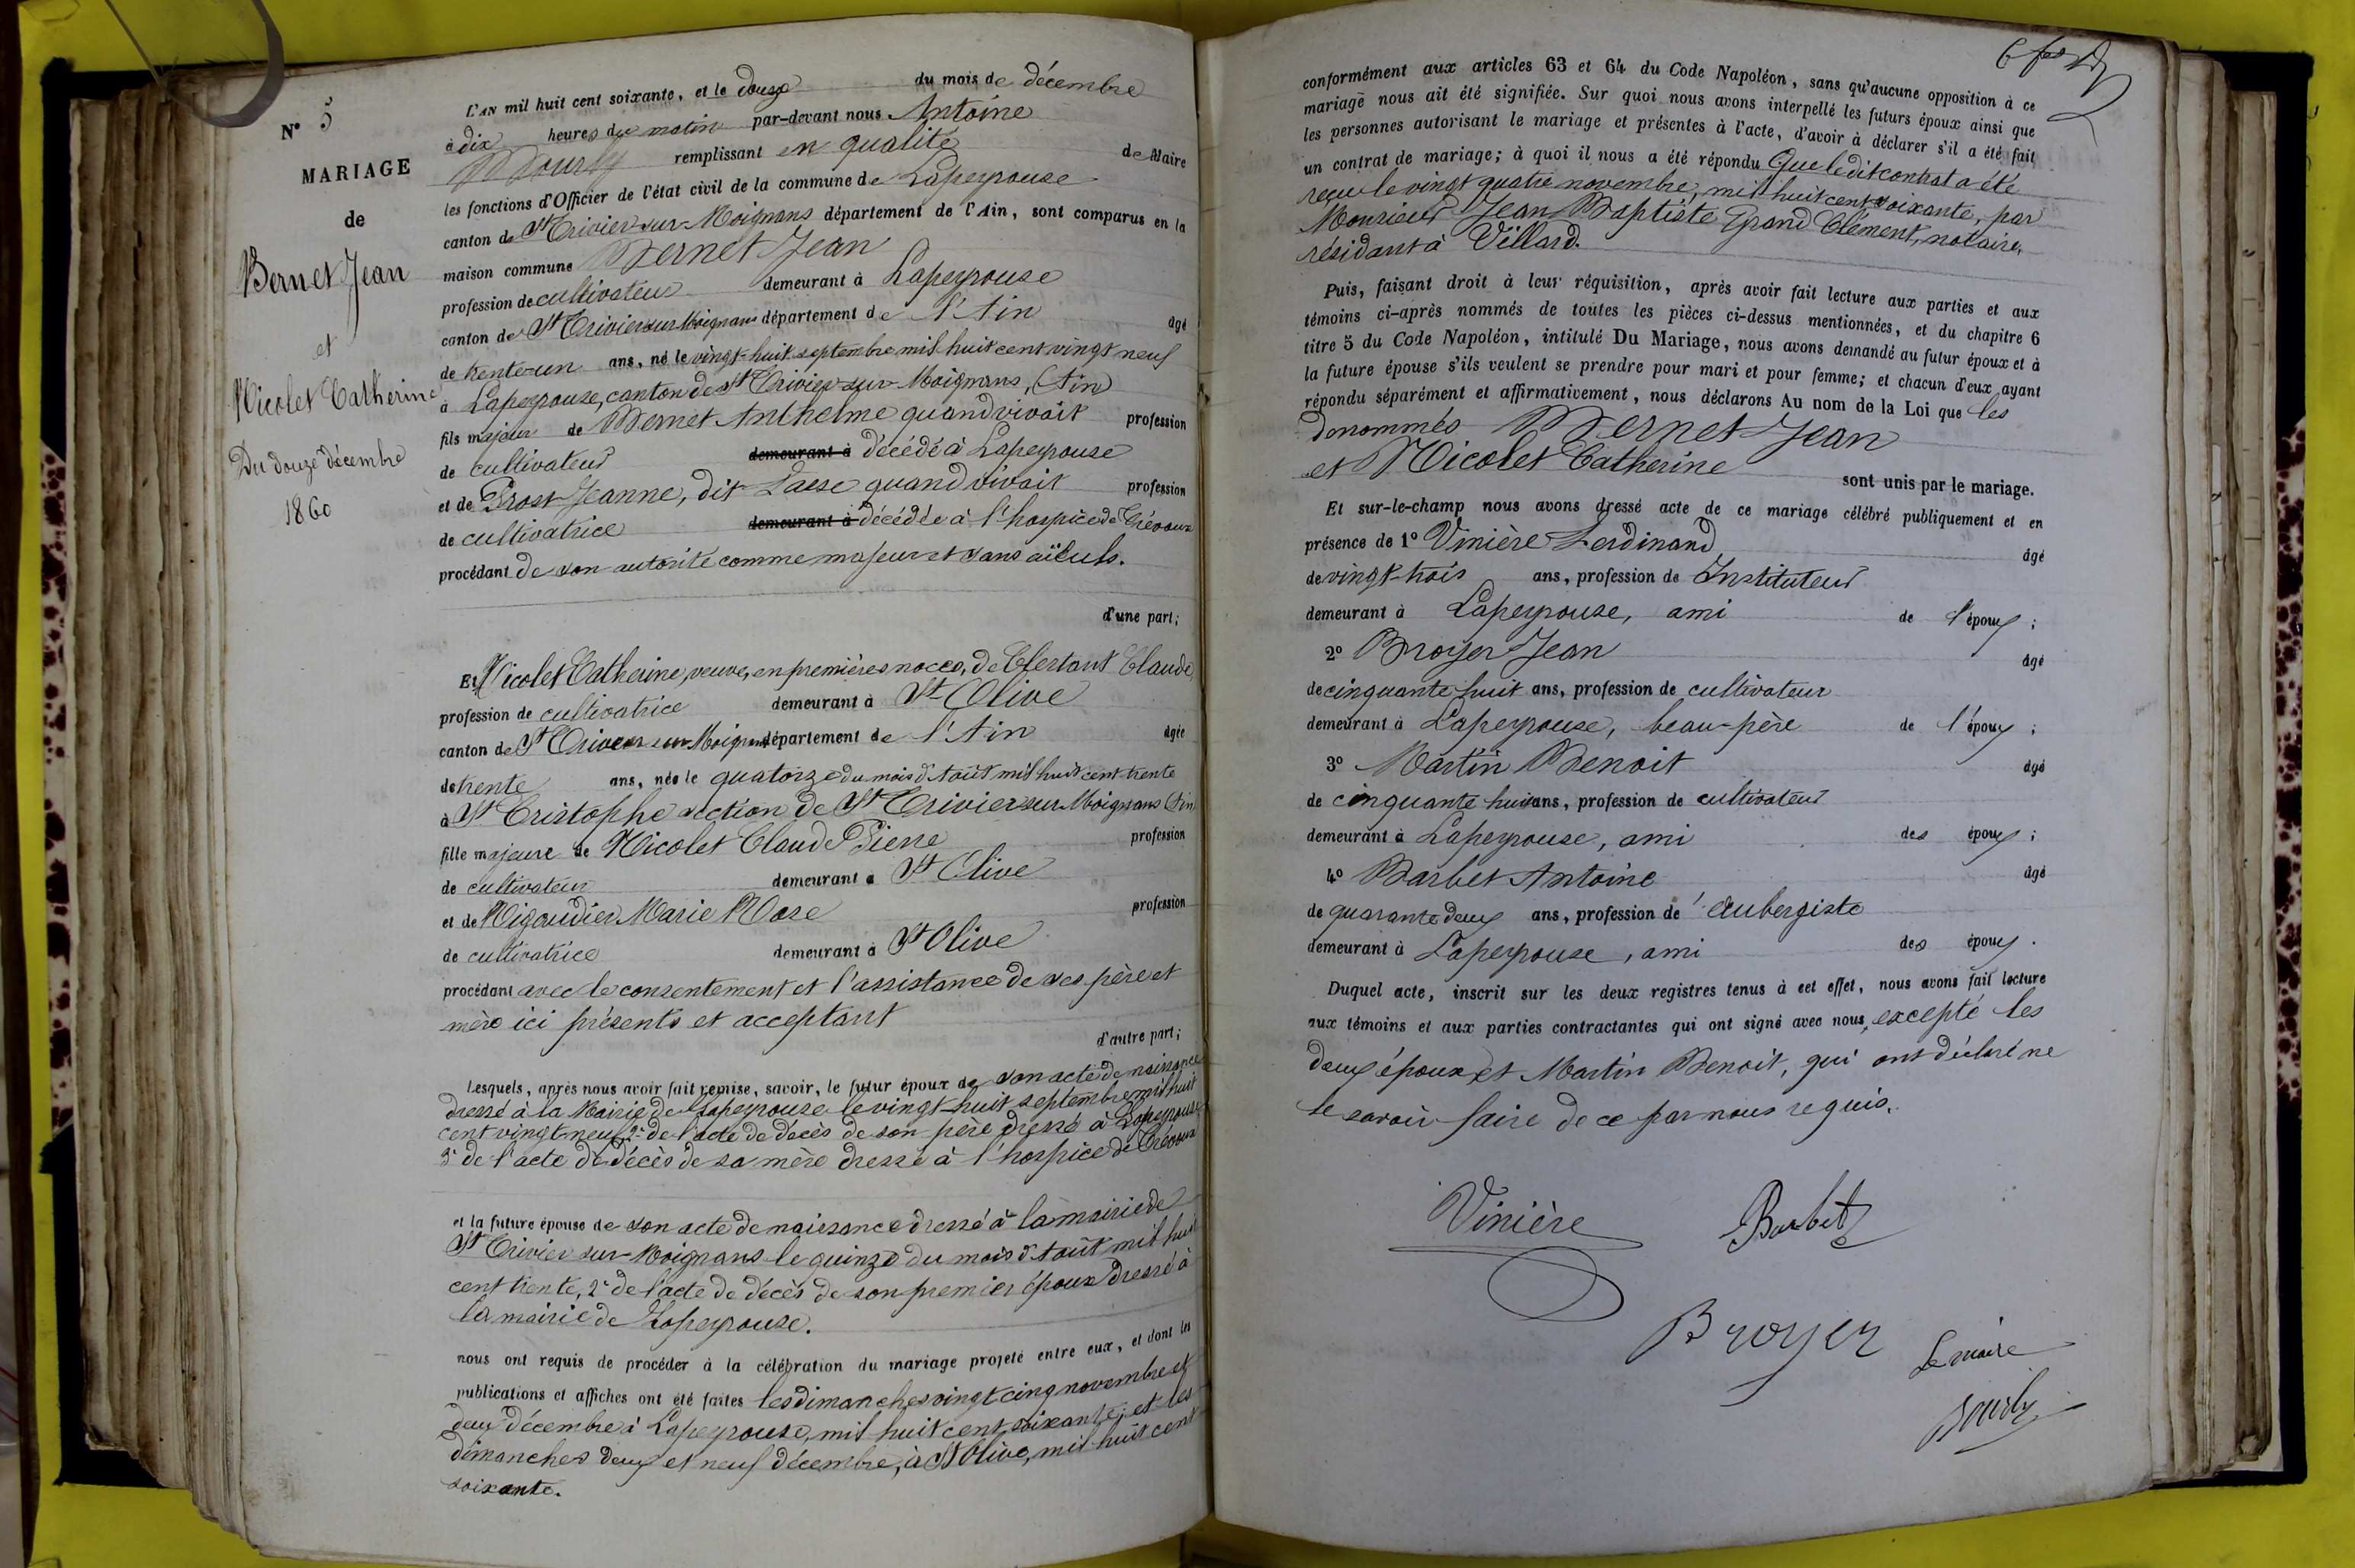 N° 5
MARIAGE
de
Bernet Jean
et
Nicolet Catherine
Du douze décembre
1860
L'AN mil huit cent soixante, et le douze du mois de décembre
à dix heures du matin par-devant nous Antoine
Bourly remplissant en qualité de Maire
les fonctions d'Officier de l'état civil de la commune de Lapeyrouse
canton de St Trivier sur-Moignans département de l'Ain, sont comparus en la
maison commune Bernet Jean
profession de cultivateur demeurant à Lapeyrouse
canton de St Trivier sur Moignans département de l'Ain âgé
de trente-un ans, né le vingt-huit septembre mil huit cent vingt neuf
à Lapeyrouse, canton de St Trivier-sur-Moignans, (Ain)
fils majeur de Bernet Anthelme quand vivait profession
de cultivateur demeurant à décédé à Lapeyrouse
et de Prost Jeanne, dit quand vivait profession
de cultivatrice demeurant à décédée à l'hospice de Trévoux
procédant de son autorité comme majeur et sans aïeuls.
d'une part;
Et Nicolet Catherine, veuve, en premières noces, de Clertant Claude,
profession de cultivatrice demeurant à St Olive
canton de St Trivier sur Moignans département de l'Ain âgée
de trente ans, née le quatorze du mois d'Août mil huit cent trente
à St Cristophe section de St Trivier sur Moignans (Ain)
fille majeure de Nicolet Claude Pierre profession
de cultivateur demeurant à St Olive
et de Rigaudier Marie Rose profession
de cultivatrice demeurant à St Olive
procédant avec le consentement et l'assistance de ses père et
mère ici présents et acceptant
d'autre part;
Lesquels, après nous avoir fait remise, savoir, le futur époux de son acte de naissance
dressé à la Mairie de Lapeyrouse le vingt-huit septembre mil huit
cent vingt neuf, 2° de l'acte de décès de son père dressé à Lapeyrouse
3° de l'acte de décès de sa mère dressé à l'hospice de Trévoux
et la future épouse de son acte de naissance dressé à la mairie de
St Trivier sur-Moignans le quinze du mois d'Août mil huit
cent trente, 2° de l'acte de décès de son premier époux dressé à
la mairie de Lapeyrouse.
nous ont requis de procéder à la célébration du mariage projeté entre eux, et dont les
publications et affiches ont été faites les dimanches vingt cinq novembre et
deux décembre à Lapeyrouse, mil huit cent soixante; et les
dimanches deux et neuf décembre, à St Olive, mil-huit cent
soixante.
conformément aux articles 63 et 64 du Code Napoléon, sans qu'aucune opposition à ce
mariage nous ait été signifiée. Sur quoi nous avons interpellé les futurs époux ainsi que
les personnes autorisant le mariage et présentes à l'acte, d'avoir à déclarer s'il a été fait
un contrat de mariage; à quoi il nous a été répondu Que ledit contrat a été
reçu le vingt quatre novembre, mil huit cent soixante, par
Monsieur Jean Baptiste Grand Clément, notaire,
résidant à Villard.
Puis, faisant droit à leur réquisition, après avoir fait lecture aux parties et aux
témoins ci-après nommés de toutes les pièces ci-dessus mentionnées, et du chapitre 6
titre 5 du Code Napoléon, intitulé Du Mariage, nous avons demandé au futur époux et à
la future épouse s'ils veulent se prendre pour mari et pour femme; et chacun d'eux ayant
répondu séparément et affirmativement, nous déclarons Au nom de la Loi que les
dénommés Bernet Jean
et Nicolet Catherine sont unis par le mariage.
Et sur-le-champ nous avons dressé acte de ce mariage célébré publiquement et en
présence de 1° Vinière Ferdinand âgé
de vingt-trois ans, profession de Instituteur
demeurant à Lapeyrouse, ami de l'époux;
2° Broyer Jean âgé
de cinquante huit ans, profession de cultivateur
demeurant à Lapeyrouse, beau-père de l'époux;
3° Martin Benoit âgé
de cinquante huit ans, profession de cultivateur
demeurant à Lapeyrouse, ami des époux;
4° Barbet Antoine âgé
de quarante deux ans, profession de Aubergiste
demeurant à Lapeyrouse, ami des époux.
Duquel acte, inscrit sur les deux registres tenus à cet effet, nous avons fait lecture
aux témoins et aux parties contractantes qui ont signé avec nous, excepté les
deux époux et Martin Benoit, qui ont déclaré ne
le savoir faire de ce par nous requis.
Vinière Barbet
Broyer Le maire
Bourly